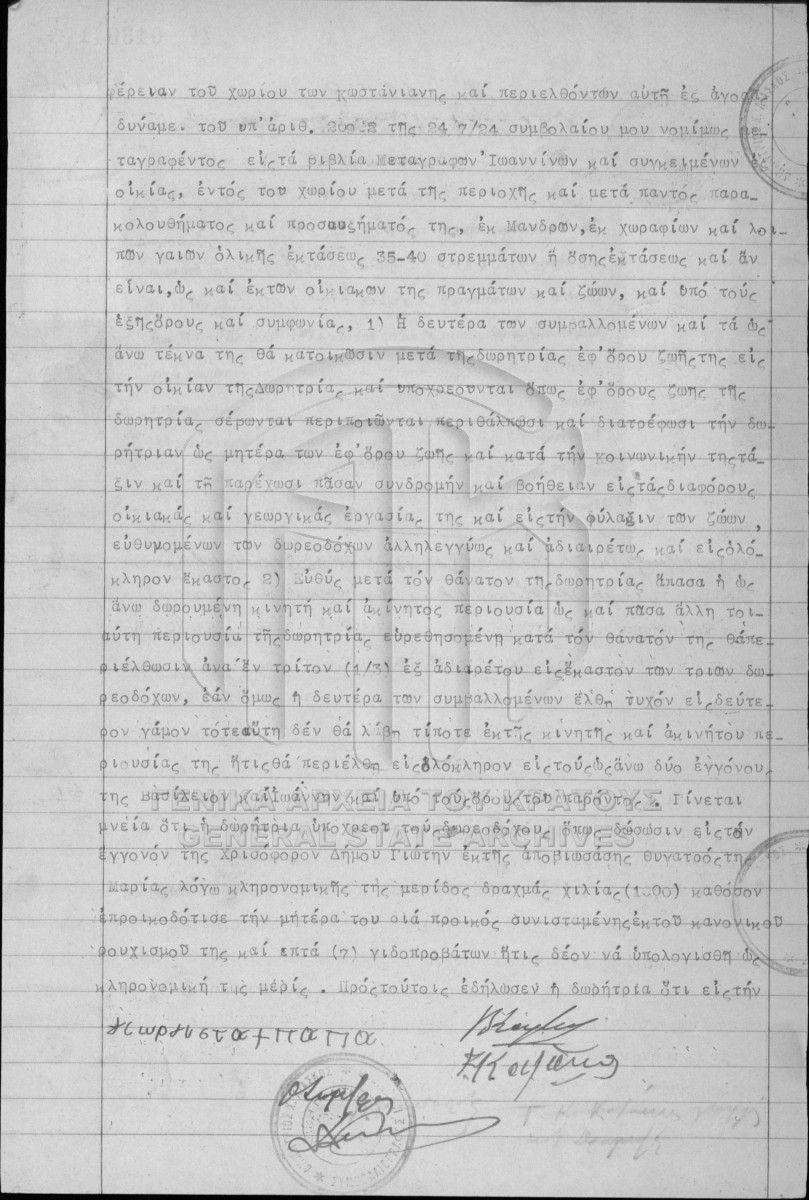 φέρειαν τοῦ χωρίου των Κωστάνιανης καί περιελθόντων αὐτῇ ἐς ἀγορᾶς
δυνάμε. τοῦ ὑπ'ἀριθ. της 24/7/24 συμβολαίου μου νομίμως με-
ταγραφέντος εἰςτά βιβλία Μεταγραφῶν Ἰωαννίνων καί συγκειμένων ἐ
οἰκίας, ἐντός του χωρίου μετά τῆς περιοχῆς καί μετά παντός παρα-
κολουθήματος καί προσαυξήματός της, ἐκ Μανδρων, ἐκ χωραφίων καί λοι
πῶν γαιων ὁλικῆς ἐκτάσεως 35-40 στρεμμάτων ἤ ὅσηςἐκτάσεως καί ἄν
εἶναι,ὡς καί ἐκτῶν οἰκιακων της πραγμάτων καί ζώων, καί ὑπό τούς
ἑξῆςὅρους καί συμφωνίας, 1) Η δευτέρα των συμβαλλομένων καί τά ὡς
ἄνω τέκνα της θά κατοικῶσιν μετά τῆςδωρητρίας ἐφ'ὅρου ζωῆςτης εἰς
τήν οἰκίαν τῆςΔωρητρίας καί υποχρεουνται ὅπως ἐφ'ὅρους ζωης τῆς
δωρητρίας σέρωνται περιποιῶνται περιθάλπωσι καί διατρέφωσι τήν δω-
ρήτριαν ὡς μητέρα των ἐφ'ὅρου ζωῆς καί κατά τήν κοινωνικήν τηςτά-
ξιν καί τῇ παρέχωσι πᾶσαν συνδρομήν καί βοήθειαν εἰςτάςδιαφόρους
οἰκιακάς καί γεωργικάς ἐργασίας της καί εἰςτήν φύλαξιν των ζώων,
εὐθυνομένων των δωρεοδόχων ἀλληλεγγύως καί ἀδιαιρέτως καί εἰςὁλό-
κληρον ἕκαστος 2) Εὐθύς μετά τόν θάνατον τηςδωρητρίας ἅπασα ἡ ὡς
ἄνω δωρουμένη κινητή καί ἀκίνητος περιουσία ὡς καί πᾶσα ἄλλη τοι-
αύτη περιουσία τῆςδωρητρίας εὑρεθησομένη κατά τόν θάνατόν της θάπε-
ριέλθωσιν ἀνα ἕν τρίτον (1/3) ἐξ ἀδιαιρέτου εἰςἕκαστον των τριων δω-
ρεοδόχων, ἐάν ὅμως ἡ δευτέρα των συμβαλλομένων ἔλθῃ τυχόν εἰςδεύτε-
ρον γάμον τότεαὕτη δέν θά λάβῃ τίποτε ἐκτῆς κινητῆς καί ἀκινήτου πε-
ριουσίας της ἥτιςθά περιέλθῃ εἰςὁλόκληρον εἰςτούςὡςἄνω δύο ἐγγόνους
της Βασίλειον καίἸωάννην καί ὑπό τούςὅρουςτοῦ παρόντος. Γίνεται
μνεία ὅτι ἡ δωρήτρια ὑποχρεοῖ τούςδωρεοδόχους ὅπως δώσωσιν εἰςτόν
ἔγγονόν της Χρισόφορον Δήμου Γιώτην ἐκτῆς ἀποβιωσάσης θυγατρόςτης
Μαρίας λόγω κληρονομικῆς της μερίδος δραχμάς χιλίας(1000) καθόσον
ἐπροικοδότισε τήν μητέρα του διά προικός συνισταμένηςἐκτοῦ κανονικοῦ
ρουχισμοῦ της καί ἑπτά (7) γιδοπροβάτων ἥτις δέον νά ὑπολογισθῇ ὡς
κληρονομική της μερίς . Πρόςτούτοις ἐδήλωσεν ἡ δωρήτρια ὅτι εἰςτήν
ΓΕΝΙΚΑ ΑΡΧΕΙΑ ΤΟΥ ΚΡΑΤΟΥΣ
GENERAL STATE ARCHIVES